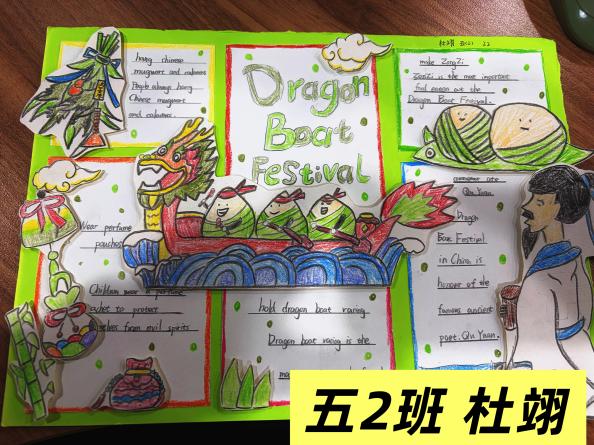 杜翊 五(2) 22
hang chinese
mugwort and calamus
People always hang
Chinese mugwort
and calamus.
Dragon
Boat
Festival
make ZongZi
ZongZi is the most important
food eaten at the
Dragon Boat Festival.
Wear perfume
pouches
Children wear a perfume
to protect
from evil spirits
hold dragon boat racing
Dragon boat racing is the
Qu Yuan
Dragon
Boat Festival
in China is
honour of the
famous ancient
poet. Qu Yuan.
五2班 杜翊